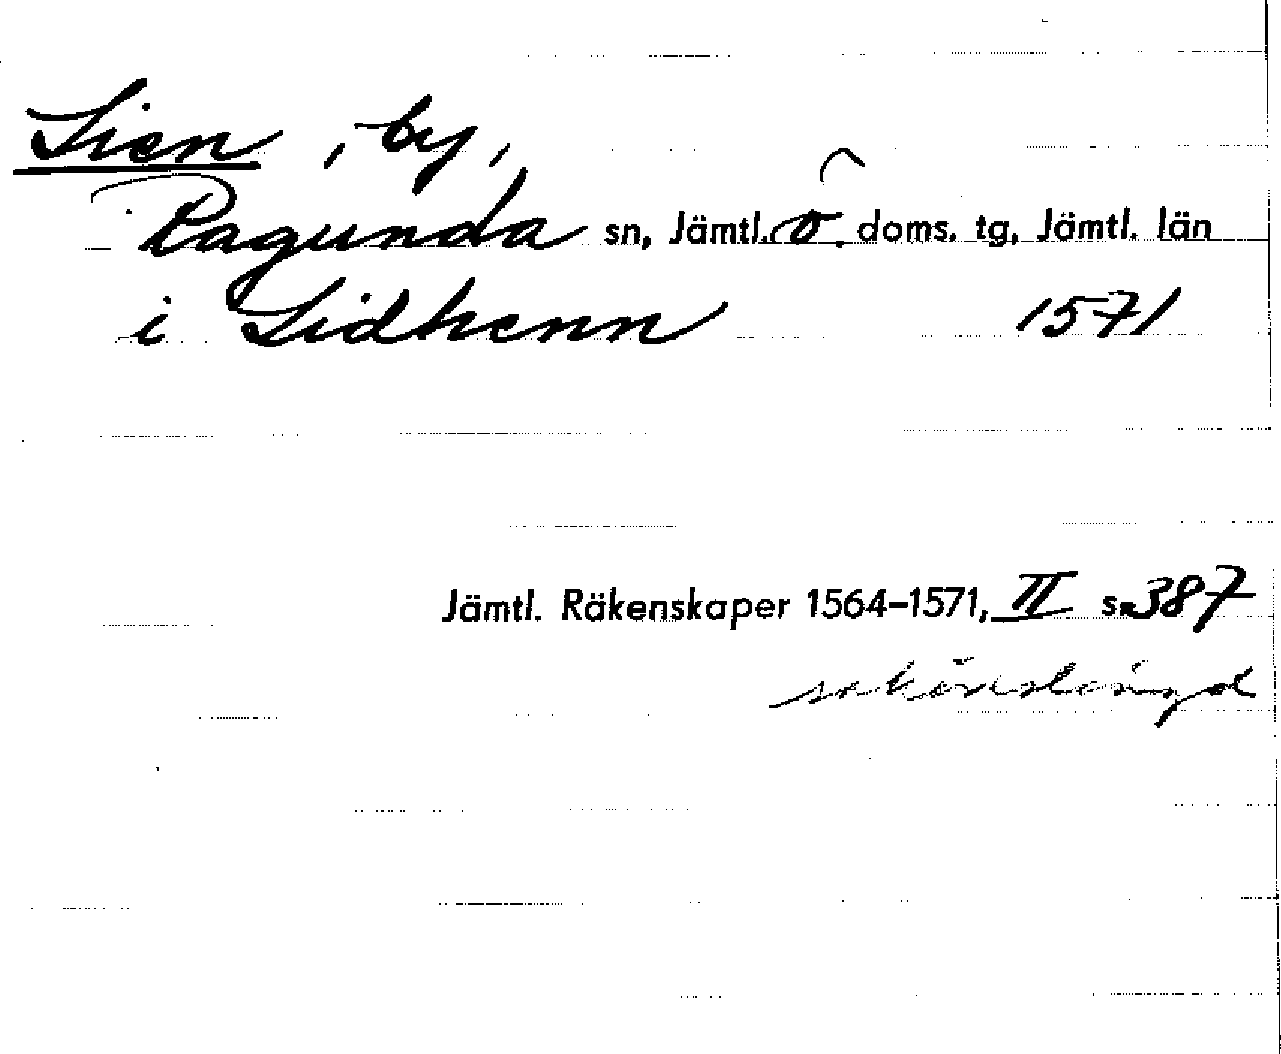 Lien, by,
Ragunda sn, Jämtl. ö. doms. tg, Jämtl. län
i Lidhenn 1571
Jämtl. Räkenskaper 1564–1571, II s. 387
sakörslängd